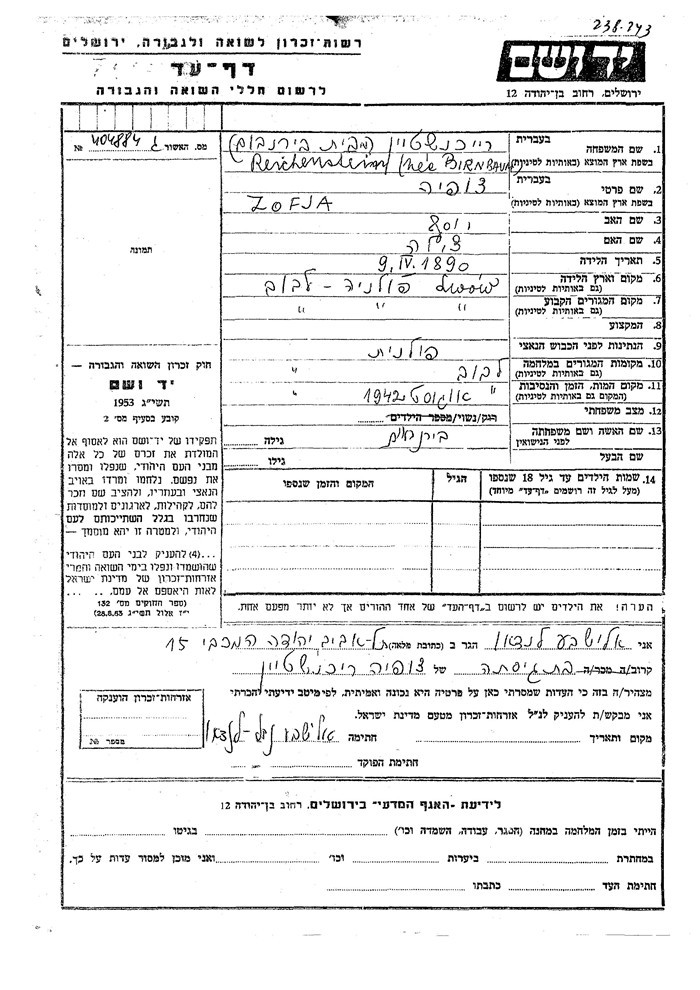 238-243
רשות-זכרון לשואה ולגבורה, ירושלים
דף-עד
לרשום חללי השואה והגבורה
יד ושם
ירושלים, רחוב בן-יהודה 12
מס. האשור ג 404884 №
תמונה
1. שם המשפחה בעברית רייכנשטיין (מבית בירנבום)
בשפת ארץ המוצא (באותיות לטיניות) Reichenstein (née BIRNBAUM)
2. שם פרטי בעברית צופיה
בשפת ארץ המוצא (באותיות לטיניות) ZOFJA
3. שם האב יוסף
4. שם האם
5. תאריך הלידה 9. IV. 1890
6. מקום וארץ הלידה (גם באותיות לטיניות) פולניה - לבוב
7. מקום המגורים הקבוע (גם באותיות לטיניות) " " "
8. המקצוע
9. הנתינות לפני הכבוש הנאצי פולנית
10. מקומות המגורים במלחמה (גם באותיות לטיניות) לבוב "
11. מקום המות, הזמן והנסיבות (המקום גם באותיות לטיניות) " אוגוסט 1942 "
12. מצב משפחתי רווק/נשוי/מספר הילדים
13. שם האשה ושם משפחתה לפני הנישואין בירנבוים גילה
שם הבעל גילו
14. שמות הילדים עד גיל 18 שנספו (מעל לגיל זה רושמים "דף-עד" מיוחד) הגיל המקום והזמן שנספו
חוק זכרון השואה והגבורה —
יד ושם
תשי"ג 1953
קובע בסעיף מס' 2
תפקידו של יד-ושם הוא לאסוף אל
המולדת את זכרם של כל אלה
מבני העם היהודי, שנפלו ומסרו
את נפשם, נלחמו ומרדו באויב
הנאצי ובעוזריו, ולהציב שם וזכר
להם, לקהילות, לארגונים ולמוסדות
שנחרבו בגלל השתייכותם לעם
היהודי, ולמטרה זו יהא מוסמך —
...(4) להעניק לבני העם היהודי
שהושמדו ונפלו בימי השואה והמרי
אזרחות-זכרון של מדינת ישראל
לאות היאספם אל עמם. . . .
(ספר החוקים מס' 132
י"ז אלול תשי"ג 28.8.53)
הערה! את הילדים יש לרשום ב"דף-העד" של אחד ההורים אך לא יותר מפעם אחת.
אני אלישבע לנדאו הגר ב (כתובת מלאה) תל-אביב יהודה המכבי 15
קרוב/ה מכר/ה בת גיסתה של צופיה רייכנשטיין
מצהיר/ה בזה כי העדות שמסרתי כאן על פרטיה היא נכונה ואמיתית, לפי מיטב ידיעתי והכרתי
אני מבקש/ת להעניק לנ"ל אזרחות-זכרון מטעם מדינת ישראל.
מקום ותאריך חתימה
חתימת הפוקד
אזרחות-זכרון הוענקה
מספר №
לידיעת "האגף המדעי" בירושלים, רחוב בן-יהודה 12
הייתי בזמן המלחמה במחנה (הסגר, עבודה, השמדה וכו') בגיטו
במחתרת ביערות וכו' ואני מוכן למסור עדות על כך,
חתימת העד כתבתו